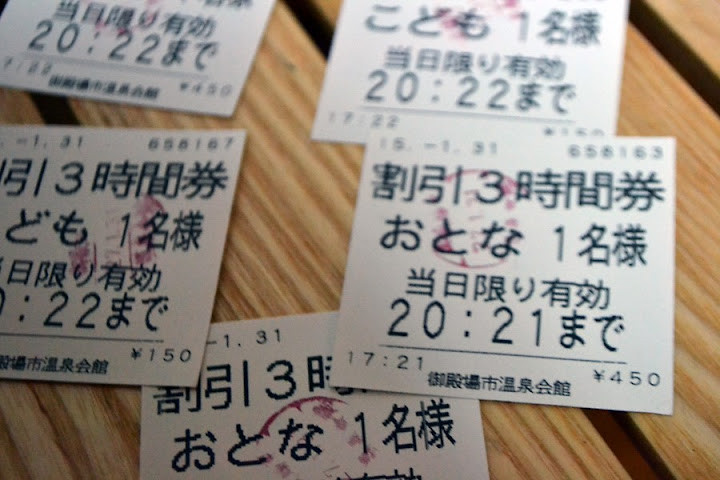 1名様
当日限り有効
20:22まで
7/22
御殿場市温泉会館 ¥450
こども 1名様
当日限り有効
20:22まで
17:22
-1.31 658167
割引3時間券
こども 1名様
当日限り有効
0:22まで
御殿場市温泉会館 ¥150
15.-1.31 658163
割引3時間券
おとな 1名様
当日限り有効
20:21まで
17:21
御殿場市温泉会館 ¥450
-1.31
割引3時
おとな 1名様